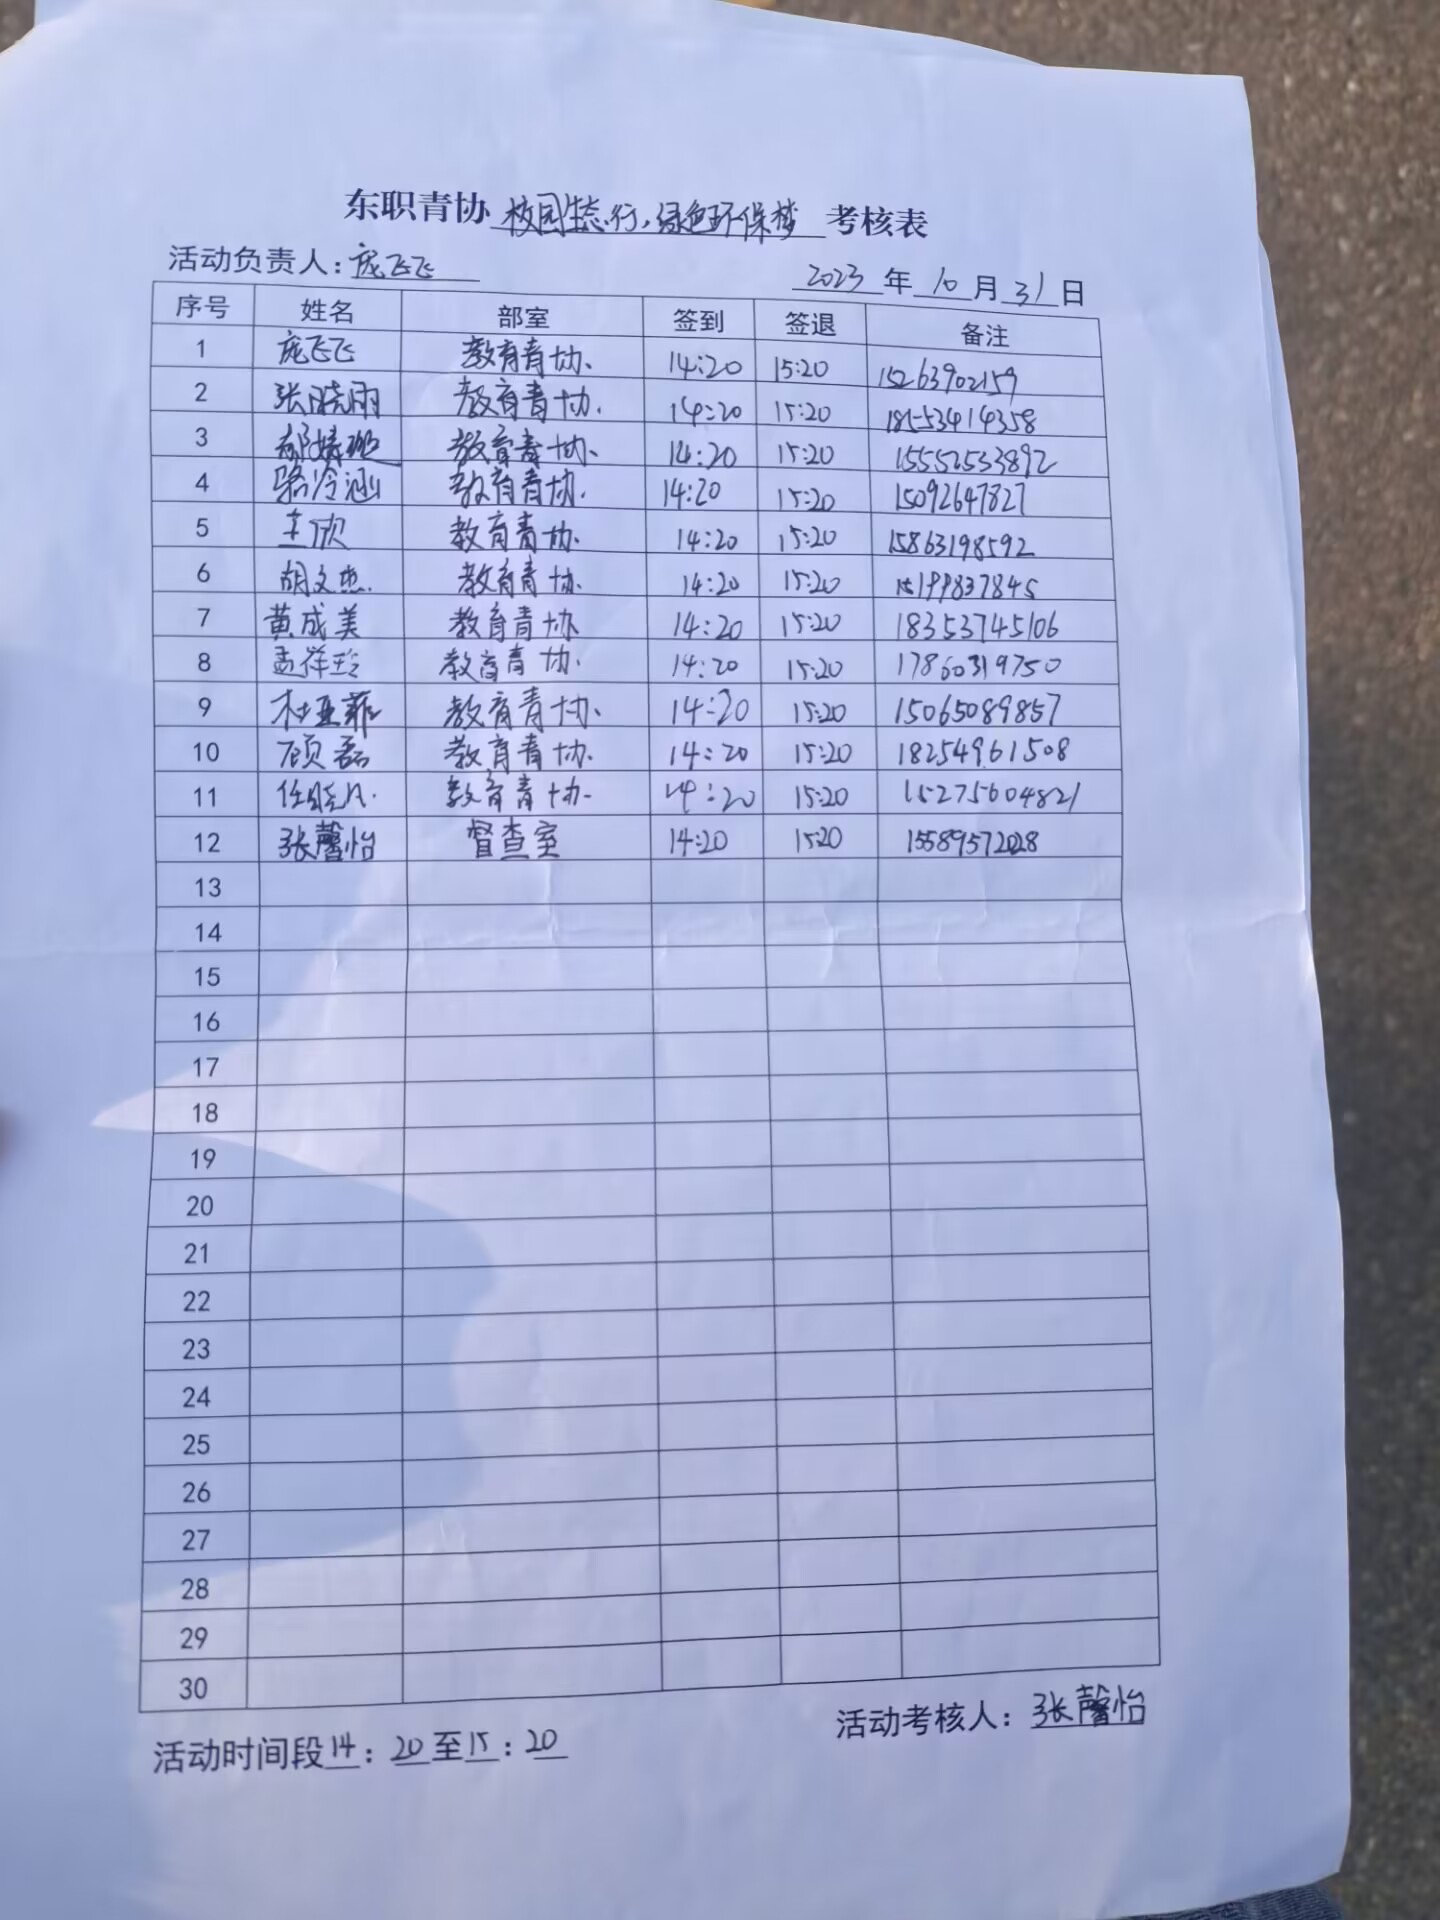 东职青协 校园生态行,绿色环保梦 考核表
活动负责人: 庞飞飞 2023 年 10 月 31 日
序号 姓名 部室 签到 签退 备注
1 庞飞飞 教育青协. 14:20 15:20 15263902159
2 张晓雨 教育青协. 14:20 15:20 18553414358
3 教育青协. 14:20 15:20 15552533892
4 骆冷涵 教育青协. 14:20 15:20 15092647827
5 王欣 教育青协. 14:20 15:20 15863198592
6 胡文杰. 教育青协. 14:20 15:20
7 黄成美 教育青协 14:20 15:20 18353745106
8 孟祥玲 教育青协. 14:20 15:20 17860319750
9 杜亚菲 教育青协. 14:20 15:20 15065089857
10 顾磊 教育青协. 14:20 15:20 18254961508
11 教育青协. 14:20 15:20 15275604821
12 张馨怡 督查室 14:20 15:20 15589572028
13
14
15
16
17
18
19
20
21
22
23
24
25
26
27
28
29
30
活动考核人: 张馨怡
活动时间段14:20至15:20